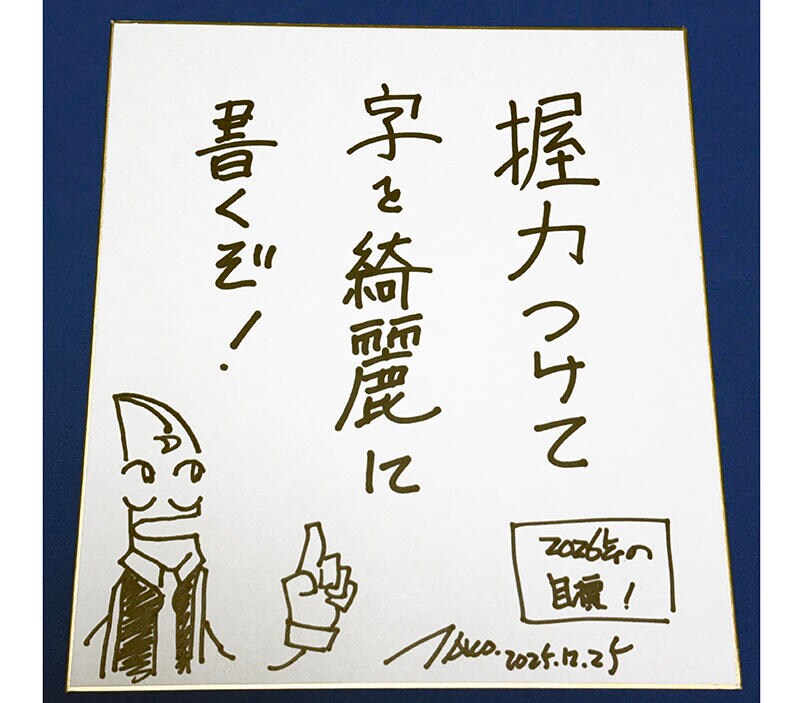 握力つけて
字を綺麗に
書くぞ!
2026年の
目標!
2025.12.25